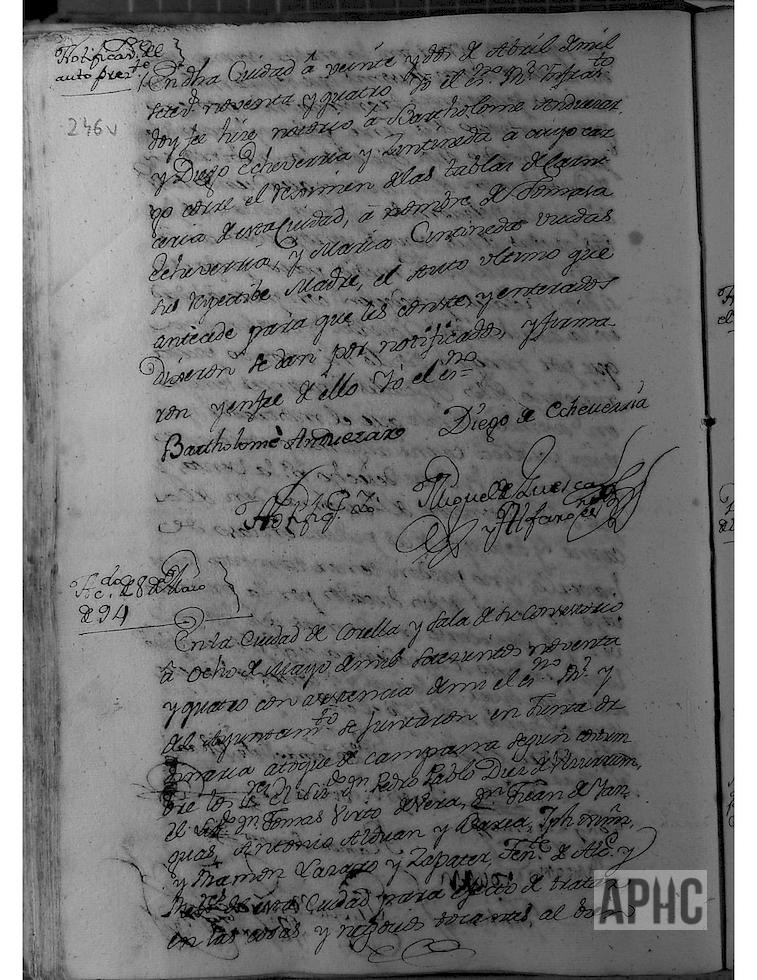 Notificaz.on del
auto prez.te
246v
En dha Ciudad â veinte y dos de Abril de mil
setez.s noventa y quatro Yo el es.no
doy fee hize notorio â Bartholome Andueza
y Diego Echeverria y Zintineda â cuyo car
go corre el resumen de las tablas de Carni
ceria de esta Ciudad, â nombre de Tomasa
Echeverria, y Maria Cintineda viudas
su respectibe Madre, el Auto ultimo que
antecede para que les conste, y enterados
Dixeron se dan por notificados, y firma
ron y en fee de ello Yo el es.no
Bartholome Andueza
Diego de Echeverria
Miguel de Luesca
y Alfaro es.no
Ac.do de 8 de Maio
de 94
En la Ciudad de Corella y Sala de su Consistorio
â ocho de Mayo de mil setezientos noventa
y quatro con asistencia de mi el es.no y
del Ayuntam.to se juntaron en Junta or
dinaria a toque de campana segun costum
bre los S.res el S.or dn Pedro Pablo Diez de
dn Tomas Virto de Vera, dn Juan de San
guas, Antonio Alduan y Barea, Jph
y Ramon Lazaro y Zapater, Ten.te de Alc.e y
de esta Ciudad para efecto de tratar
en las cosas y negocios tocantes al bien
APHC